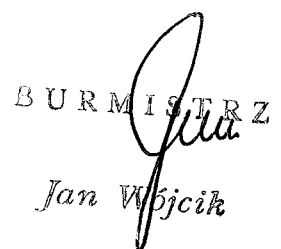 BURMISTRZ
Jan Wójcik